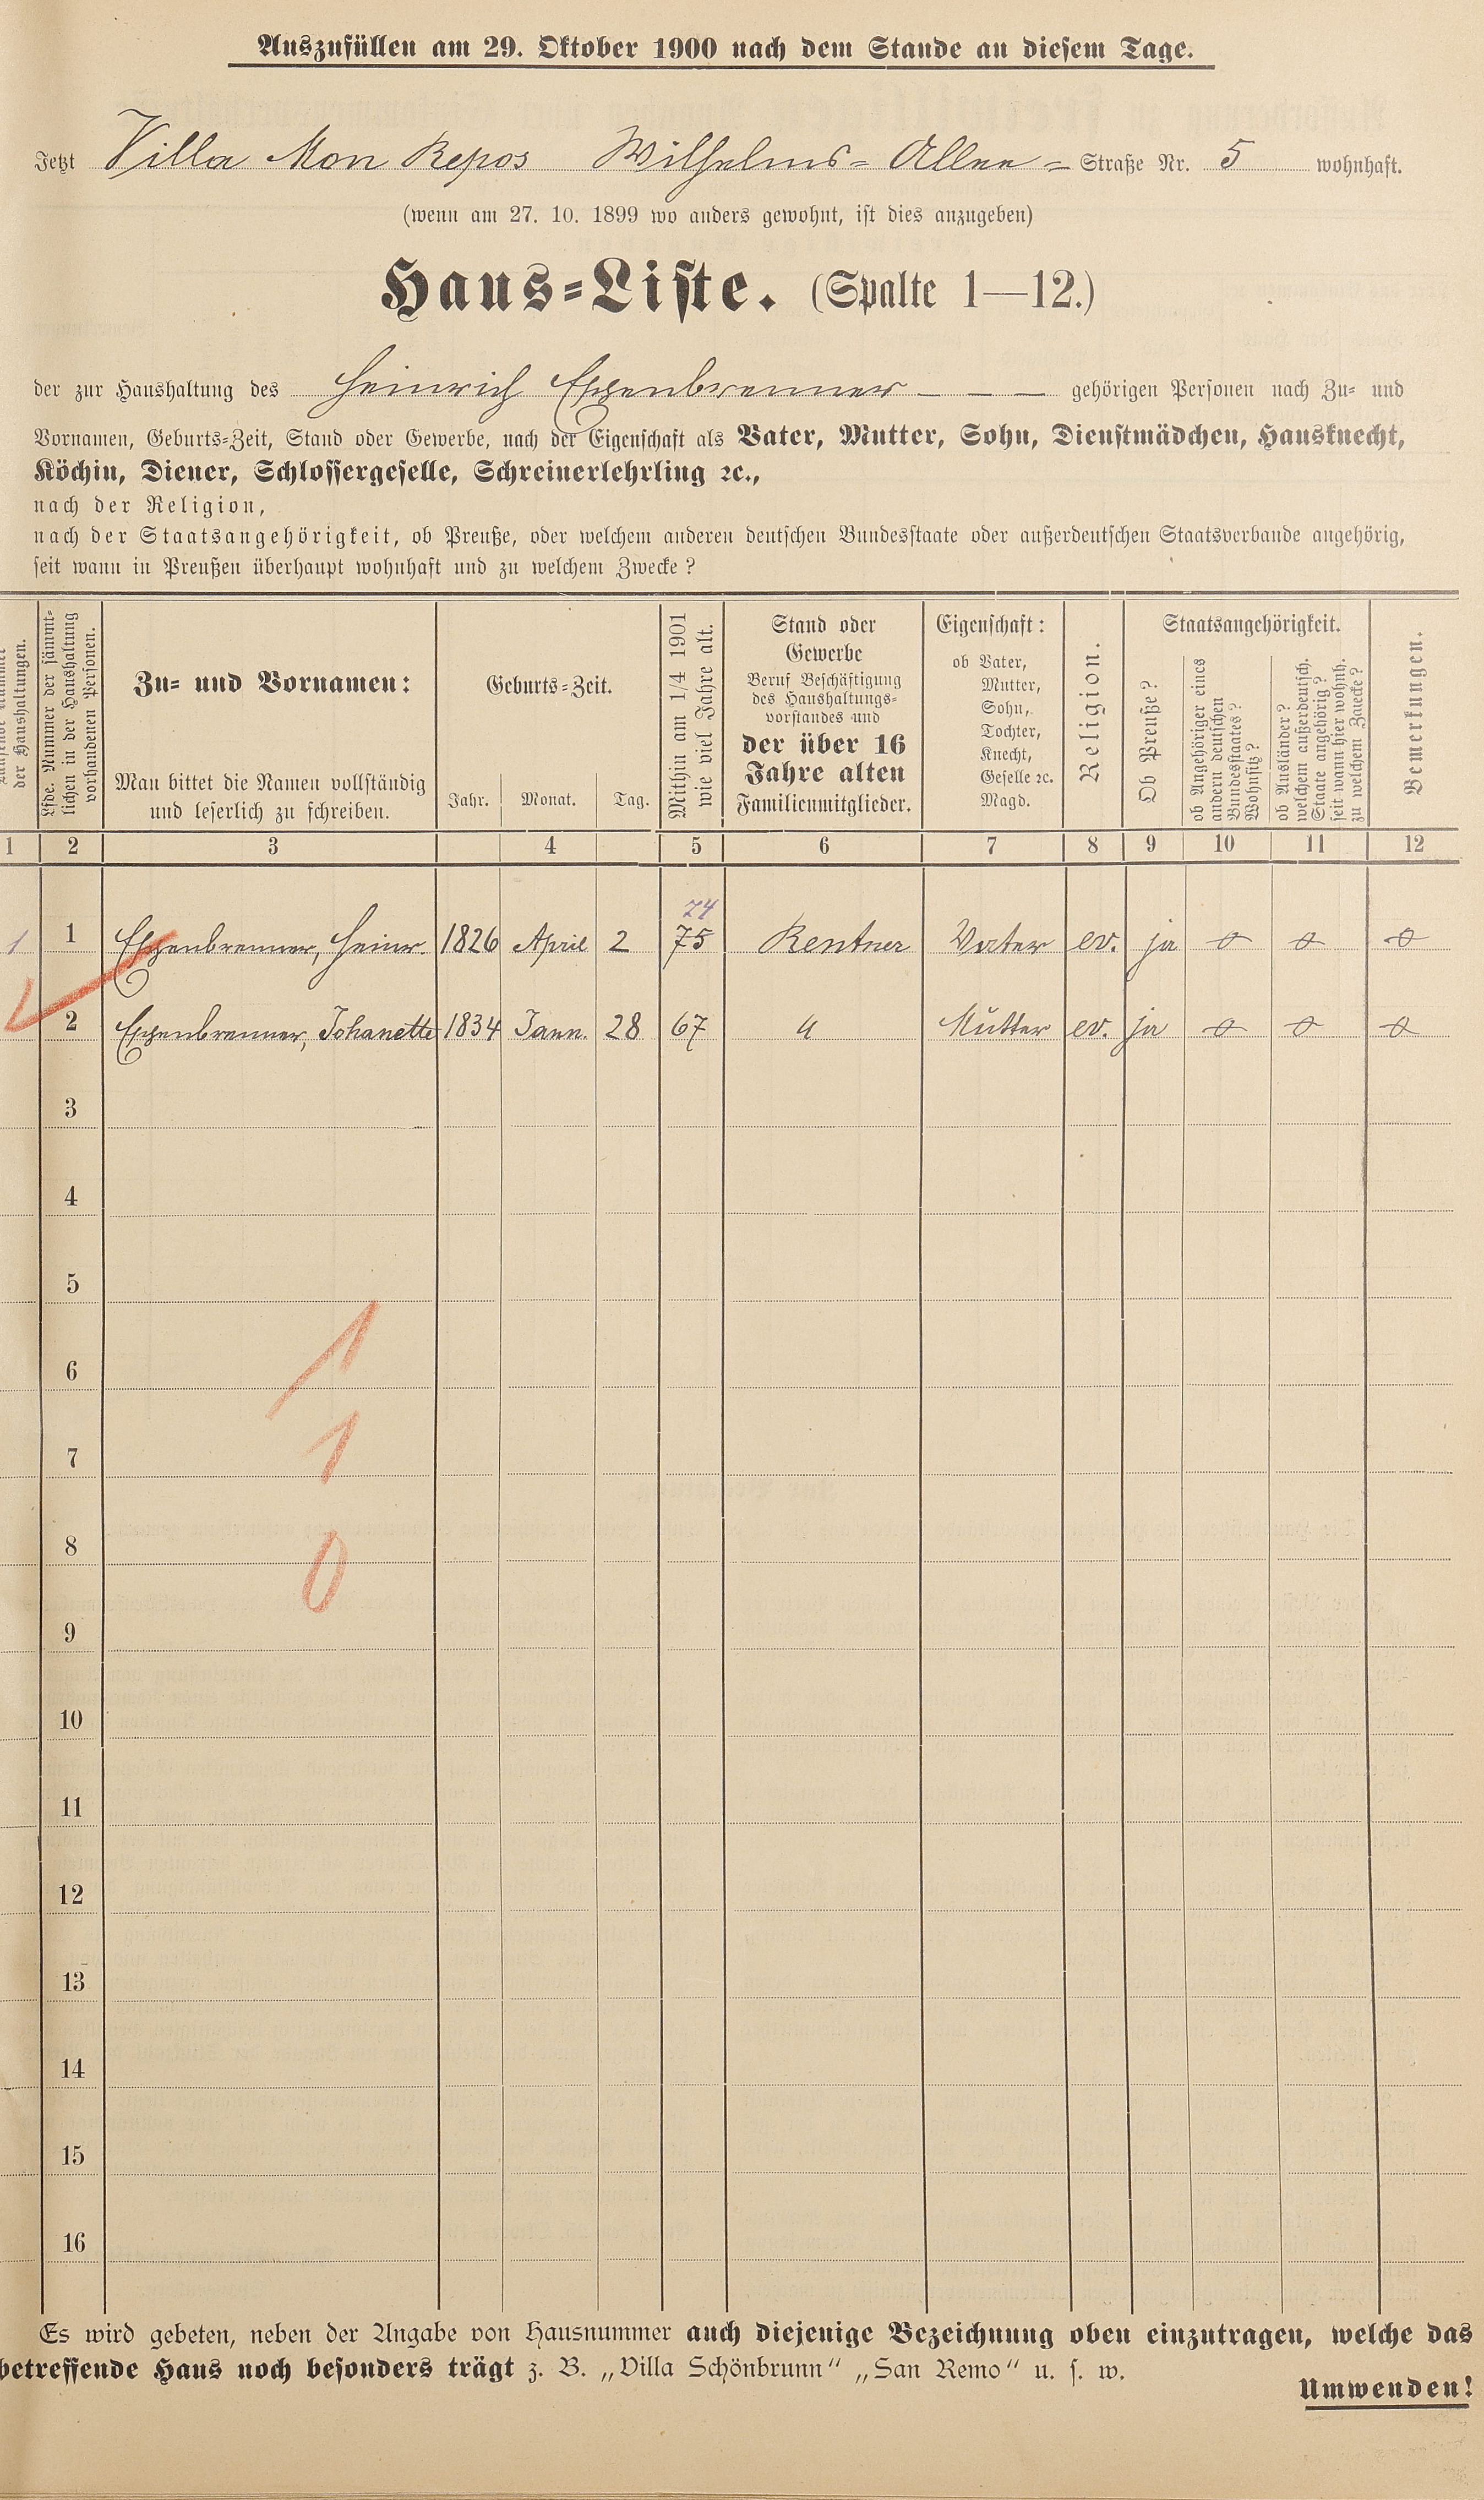 Auszufüllen am 29. Oktober 1900 nach dem Stande an diesem Tage.
Jetzt Villa Mon Repos Wilhelms- Allee - Straße Nr. 5 wohnhaft.
(wenn am 27. 10. 1899 wo anders gewohnt, ist dies anzugeben)
Haus-Liste. (Spalte 1—12.)
der zur Haushaltung des Heinrich Eppenbrenner — — — gehörigen Personen nach Zu- und
Vornamen, Geburts-Zeit, Stand oder Gewerbe, nach der Eigenschaft als Vater, Mutter, Sohn, Dienstmädchen, Hausknecht,
Köchin, Diener, Schlossergeselle, Schreinerlehrling ꝛc.,
nach der Religion,
nach der Staatsangehörigkeit, ob Preuße, oder welchem anderen deutschen Bundesstaate oder außerdeutschen Staatsverbande angehörig,
seit wann in Preußen überhaupt wohnhaft und zu welchem Zwecke?
der Haushaltungen.
Lfde. Nummer der sämmt-
lichen in der Haushaltung
vorhandenen Personen.
Zu- und Vornamen:
Man bittet die Namen vollständig
und leserlich zu schreiben.
Geburts-Zeit.
Jahr. Monat. Tag.
Mithin am 1/4 1901
wie viel Jahre alt.
Stand oder
Gewerbe
Beruf Beschäftigung
des Haushaltungs-
vorstandes und
der über 16
Jahre alten
Familienmitglieder.
Eigenschaft:
ob Vater,
Mutter,
Sohn,
Tochter,
Knecht,
Geselle ꝛc.
Magd.
Religion.
Staatsangehörigkeit.
Ob Preuße?
ob Angehöriger eines
andern deutschen
Bundesstaates?
Wohnsitz?
ob Ausländer?
welchem außerdeutsch.
Staate angehörig?
seit wann hier wohnh.
zu welchem Zwecke?
Bemerkungen.
1 2 3 4 5 6 7 8 9 10 11 12
74
1 1 Eppenbrenner, Heinr. 1826 April 2 75 Rentner Vater ev. ja o o o
2 Eppenbrenner, Johanette 1834 Jann. 28 67 Mutter ev. ja o o o
3
4
5
6
1
7
1
8
0
9
10
11
12
13
14
15
16
Es wird gebeten, neben der Angabe von Hausnummer auch diejenige Bezeichnung oben einzutragen, welche das
betreffende Haus noch besonders trägt z. B. „Villa Schönbrunn“ „San Remo“ u. s. w.
Umwenden!